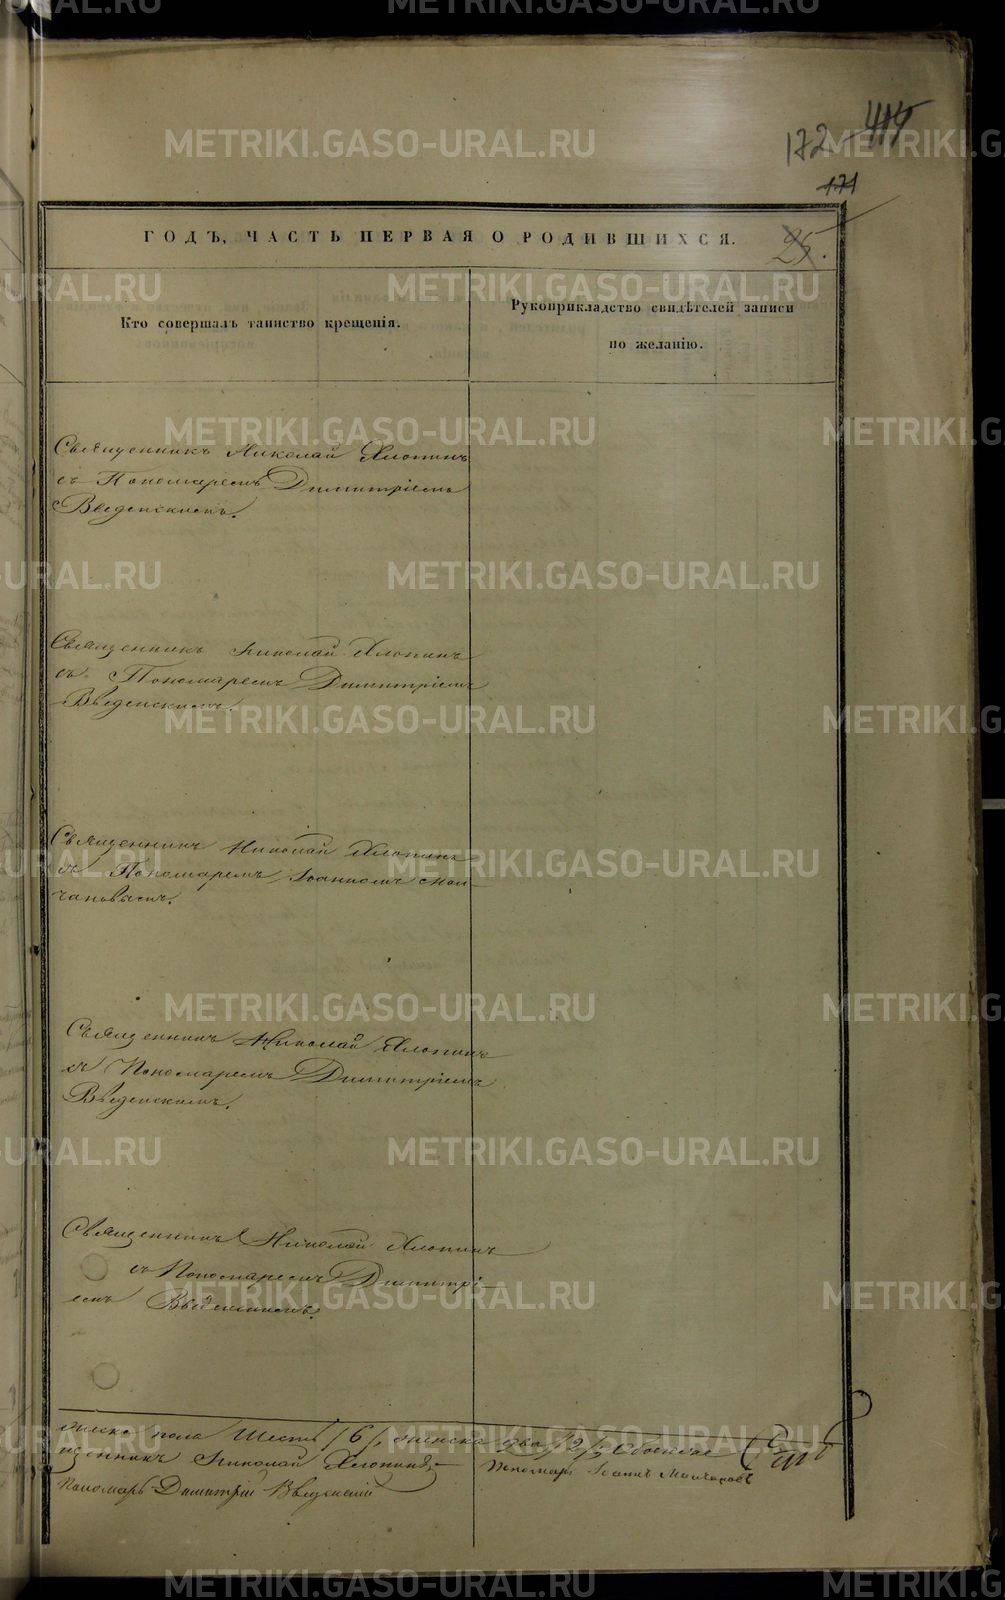 172 414
171
ГОДЪ, ЧАСТЬ ПЕРВАЯ О РОДИВШИХСЯ. 25.
Кто совершалъ таинство крещенія.
Рукоприкладство свидѣтелей записи
по желанію.
Священникъ Николай Хлопинъ
съ Пономаремъ Димитріемъ
Введенскимъ.
Священникъ Николай Хлопинъ
съ Пономаремъ Димитріемъ
Введенскимъ.
Священникъ Николай Хлопинъ
съ Пономаремъ Іоанномъ Мол-
чановымъ.
Священникъ Николай Хлопинъ
съ Пономаремъ Димитріемъ
Введенскимъ.
Священникъ Николай Хлопинъ
съ Пономаремъ Димитрі-
емъ Введенскимъ.
пола Шесть /6/, женска два /2/,
щенникъ Николай Хлопинъ
Пономарь Іоаннъ Молчановъ
Пономарь Димитрій Введенскій
METRIKI.GASO-URAL.RU